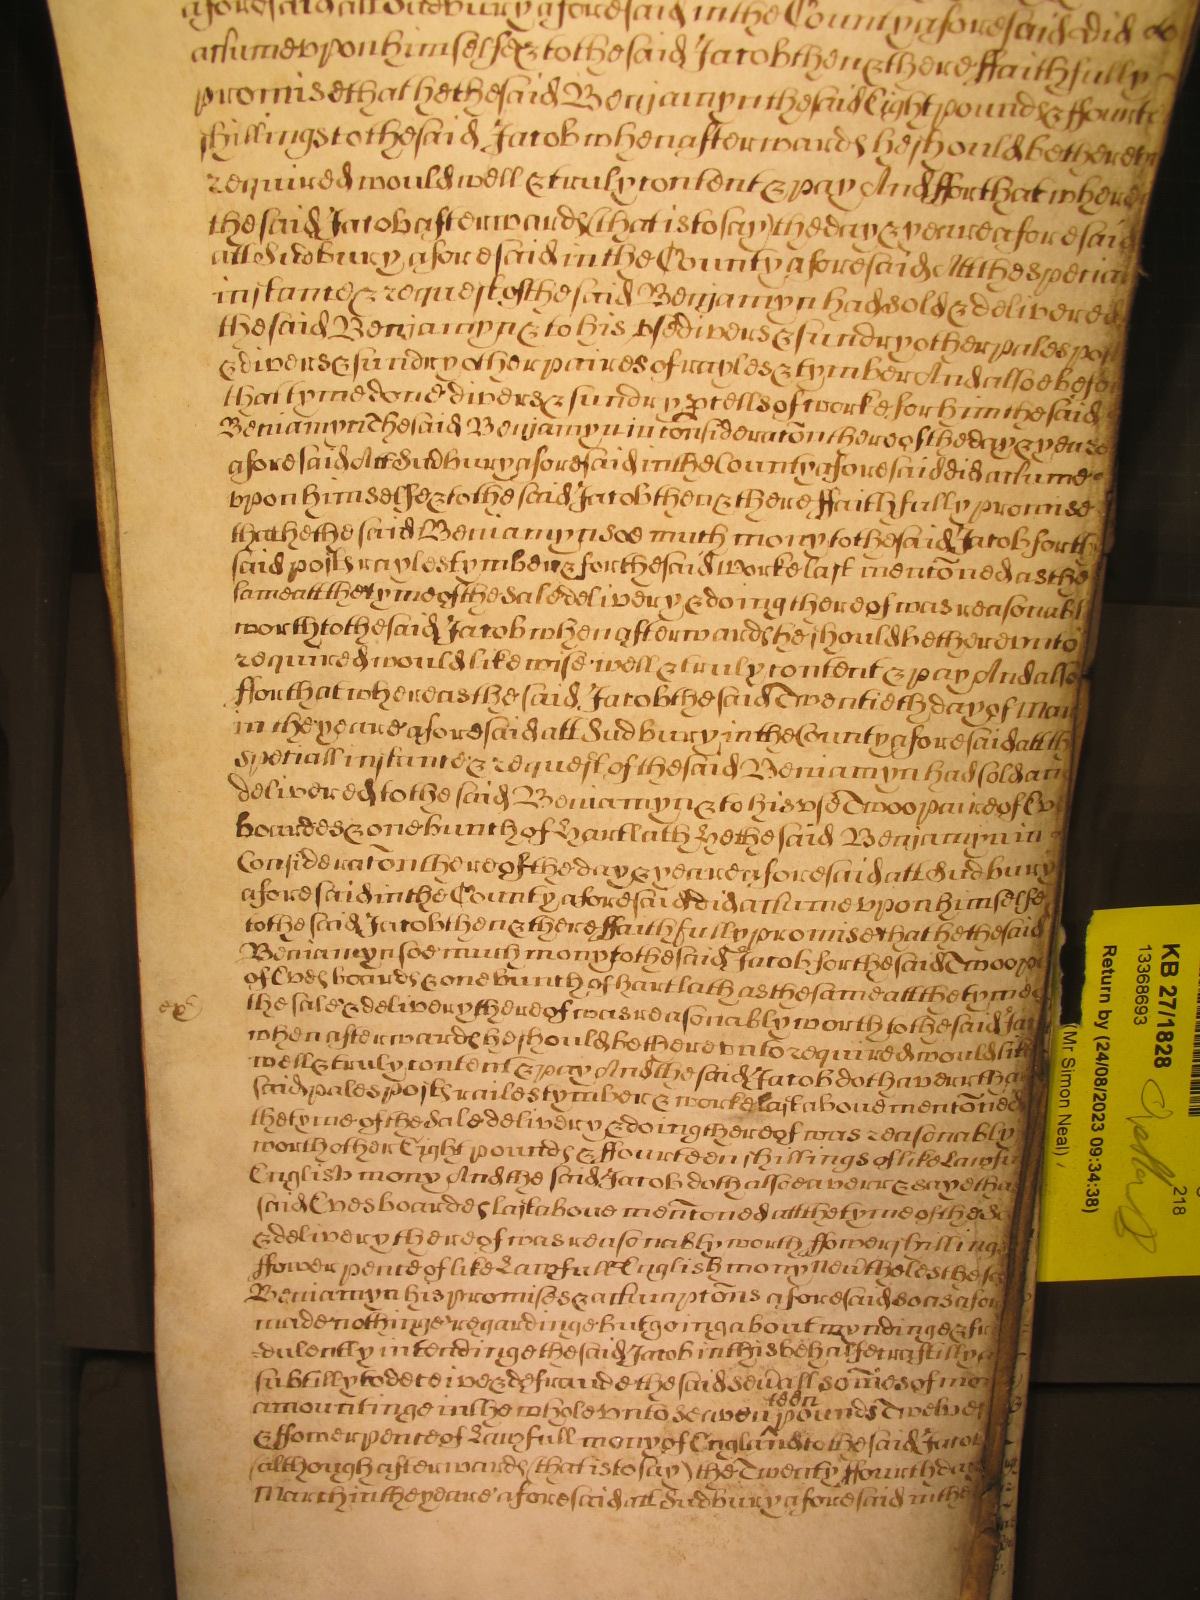 aforesaid att Sudbury aforesaid in the County aforesaid did
assume vpon himselfe & to the said Jacob then & there ffaithfully
promise that he the said Beniamyn the said Eight pounds & ffourte
shillings to the said Jacob when afterwards he should be therevn
required would well & truly content & pay And ffor that where
the said Jacob afterwards (that is to say) the day & yeare aforesaid
att Sudbury aforesaid in the County aforesaid Att the speciall
instance & request of the said Benjamyn had sold & delivered
the said Benjamyn & to his vse divers & sundry other pales pos
& divers & sundry other paires of rayles & tymber And alsoe befo
that tyme done divers & sundry p[er]cells of worke for him the said
Beniamyn The said Benjamyn in consideracon thereof the day & yeare
aforesaid Att Sudbury aforesaid in the County aforesaid did assume
vpon himselfe & to the said Jacob then & there ffaithfully promise
that he the said Beniamyn soe much mony to the said Jacob for th
said posts rayles tymber & for the said worke last mencōned as the
same att the tyme of the sale delivery & doing thereof was reasonabl
worth to the said Jacob when afterwards he should be therevnto
required would likewise well & truly content & pay And also
ffor that whereas the said Jacob the said Twentieth day of Mar
in the yeare aforesaid att Sudbury in the County aforesaid att th
speciall instance & request of the said Beniamyn had sold an
delivered to the said Beniamyn & to his vse Twoo paire of Ev
boardes & one bunch of Hartlath He the said Benjamyn in
Consideracōn thereof the day & yeare aforesaid att Sudbury
aforesaid in the County aforesaid did assume vpon himselfe
to the said Jacob then & there ffaithfully promise that he the said
Beniamyn soe much mony to the said Jacob for the said Twoo p
of Eves boards & one bunch of hartlath as the same att the tyme
the sale & delivery thereof was reasonably worth to the said Jac
when afterwards he should be therevnto required would lik
well & truly content & pay And the said Jacob doth averr tha
said pales posts railes tymber & worke last above mencōned
the tyme of the sale delivery & doing thereof was reasonably
worth other Eight pounds & ffourteen shillings of like Lawfu
English mony And the said Jacob doth alsoe averr & saye tha
said Eves boardes last above mencōned att the tyme of the sa
& delivery thereof was reasonably worth ffower shillings
ffower pence of like Lawfull English mony Nev'theles the sa
Beniamyn his promises & assumpcōns aforesaid soe as afor
made nothinge regardinge but going about myndinge & fra
dulently intendinge the said Jacob in this behalfe craftilly
subtilly to deceive & defraude the said sev'all som̄es of mon
teen
amountinge in the whole vnto Seaven pounds Twelve
& ffower pence of Lawfull mony of England to the said Jacob
(although afterwards (that is to say) the Twenty ffourth da
March in the yeare aforesaid att Sudbury aforesaid in the
KB 27/1828
13368693
218
Return by (24/08/2023 09:34:38)
(Mr Simon Neal)